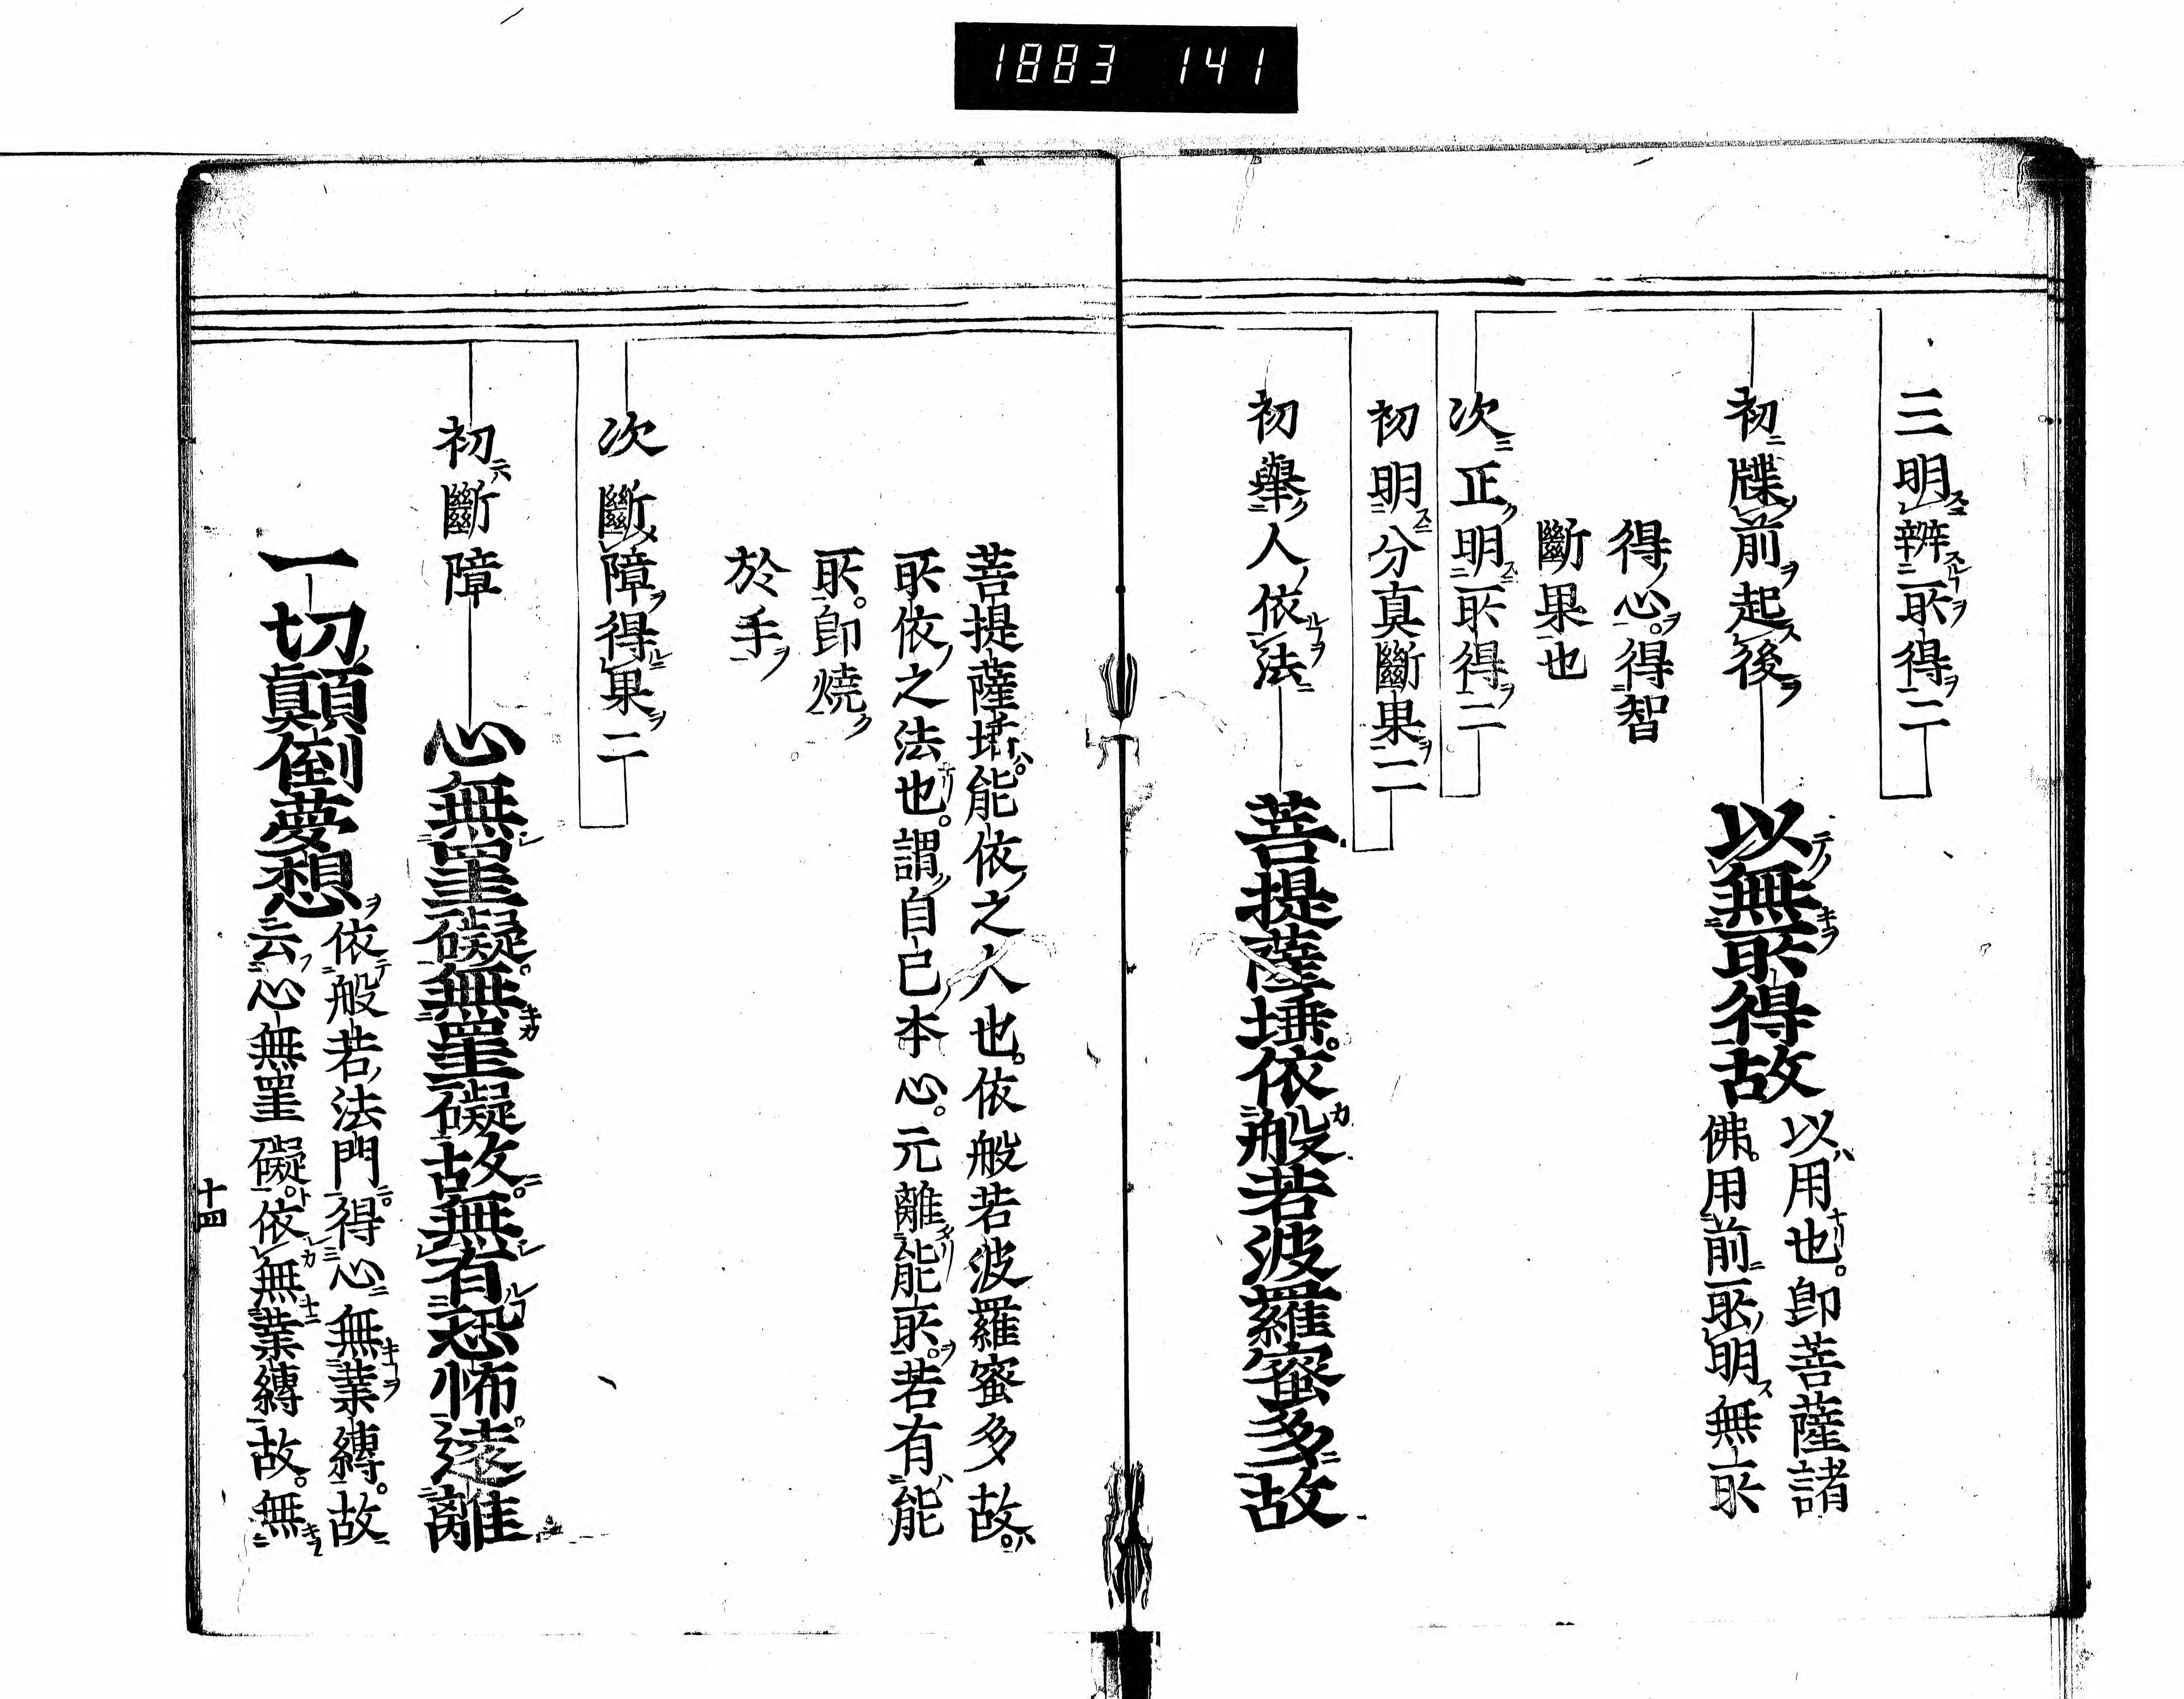 1883 141
三明辨所得二
初牒前起後
以無所得故
以用也。即菩薩諸
佛。用前所明無所
得心。得智
斷果也
次正明所得二
初明分真斷果二
初舉人依法
菩提薩埵。依般若波羅蜜多故
菩提薩埵。能依之人也。依般若波羅蜜多故。
所依之法也。謂自己本心。元離能所。若有能
所。即燒
於手
次斷障得果二
初斷障
心無罣礙。無罣礙故。無有恐怖。遠離
一切顛倒夢想
依般若法門。得心無業縛。故
云心無罣礙。依無業縛故。無
十四